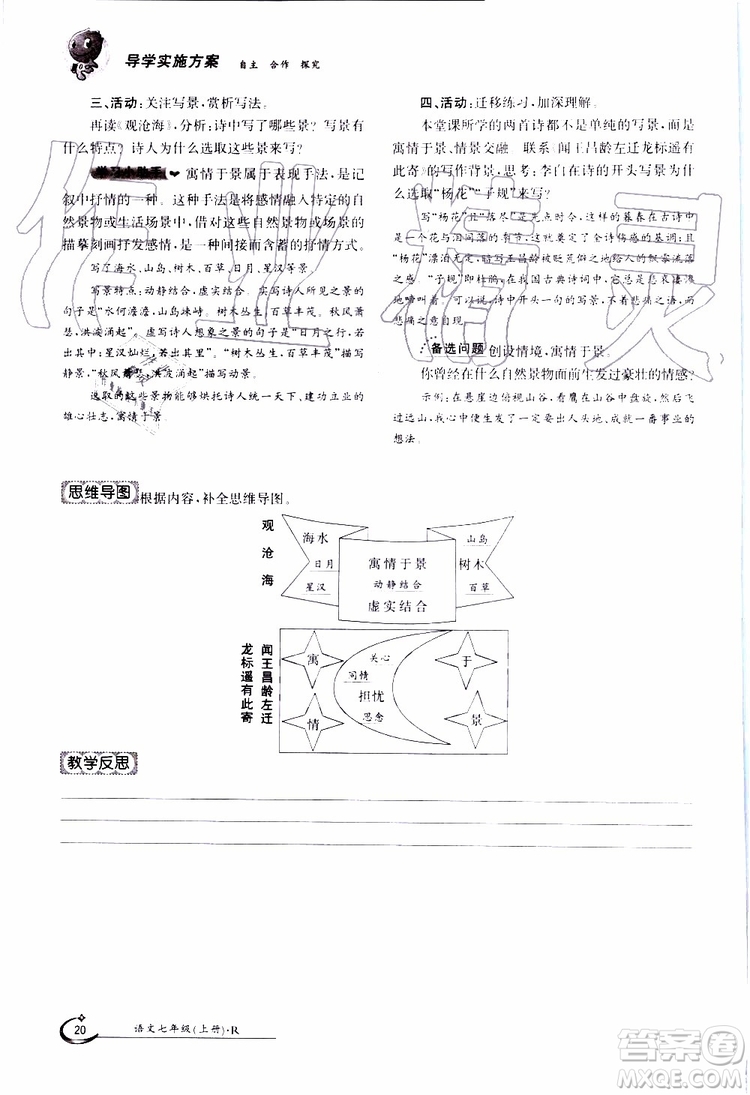 导学实施方案 自主 合作 探究
三、活动：关注写景，赏析写法。
再读《观沧海》，分析：诗中写了哪些景？写景有
什么特点？诗人为什么选取这些景来写？
学习小助手 寓情于景属于表现手法，是记
叙中抒情的一种。这种手法是将感情融入特定的自
然景物或生活场景中，借对这些自然景物或场景的
描摹刻画抒发感情，是一种间接而含蓄的抒情方式。
写了海水、山岛、树木、百草、日月、星汉等景。
写景特点：动静结合，虚实结合。实写诗人所见之景的
句子是“水何澹澹，山岛竦峙。树木丛生，百草丰茂。秋风萧
瑟，洪波涌起”。虚写诗人想象之景的句子是“日月之行，若
出其中；星汉灿烂，若出其里”。“树木丛生，百草丰茂”描写
静景，“秋风萧瑟，洪波涌起”描写动景。
选取的这些景物能够烘托诗人统一天下、建功立业的
雄心壮志，寓情于景。
四、活动：迁移练习，加深理解。
本堂课所学的两首诗都不是单纯的写景，而是
寓情于景、情景交融。联系《闻王昌龄左迁龙标遥有
此寄》的写作背景，思考：李白在诗的开头写景为什
么选取“杨花”“子规”来写？
写“杨花”且“落尽”是先点时令，这样的暮春在古诗中
是一个花与泪同落的季节，这就奠定了全诗伤感的基调；且
“杨花”漂泊无定，暗写王昌龄被贬荒僻之地给人的飘零流落
之感。“子规”即杜鹃，在我国古典诗词中，它总是悲哀凄凉
地啼叫着，可以说，诗中开头一句写景就流露出感伤之语，而
悲痛之意自现。
备选问题 创设情境，寓情于景。
你曾经在什么自然景物面前生发过豪壮的情感？
示例：在悬崖边俯视山谷，看鹰在山谷中盘旋，听山风猎
猎吹过，我心中便生发了一定要出人头地、成就一番事业的
想法。
思维导图 根据内容，补全思维导图。
观沧海
海水
日月
星汉
寓情于景
动静结合
虚实结合
山岛
树木
百草
闻王昌龄左迁
龙标遥有此寄
寓
情
关心
同情
担忧
思念
于
景
教学反思
20 语文七年级(上册)·R
作业精灵
答案圈
MXQE.COM